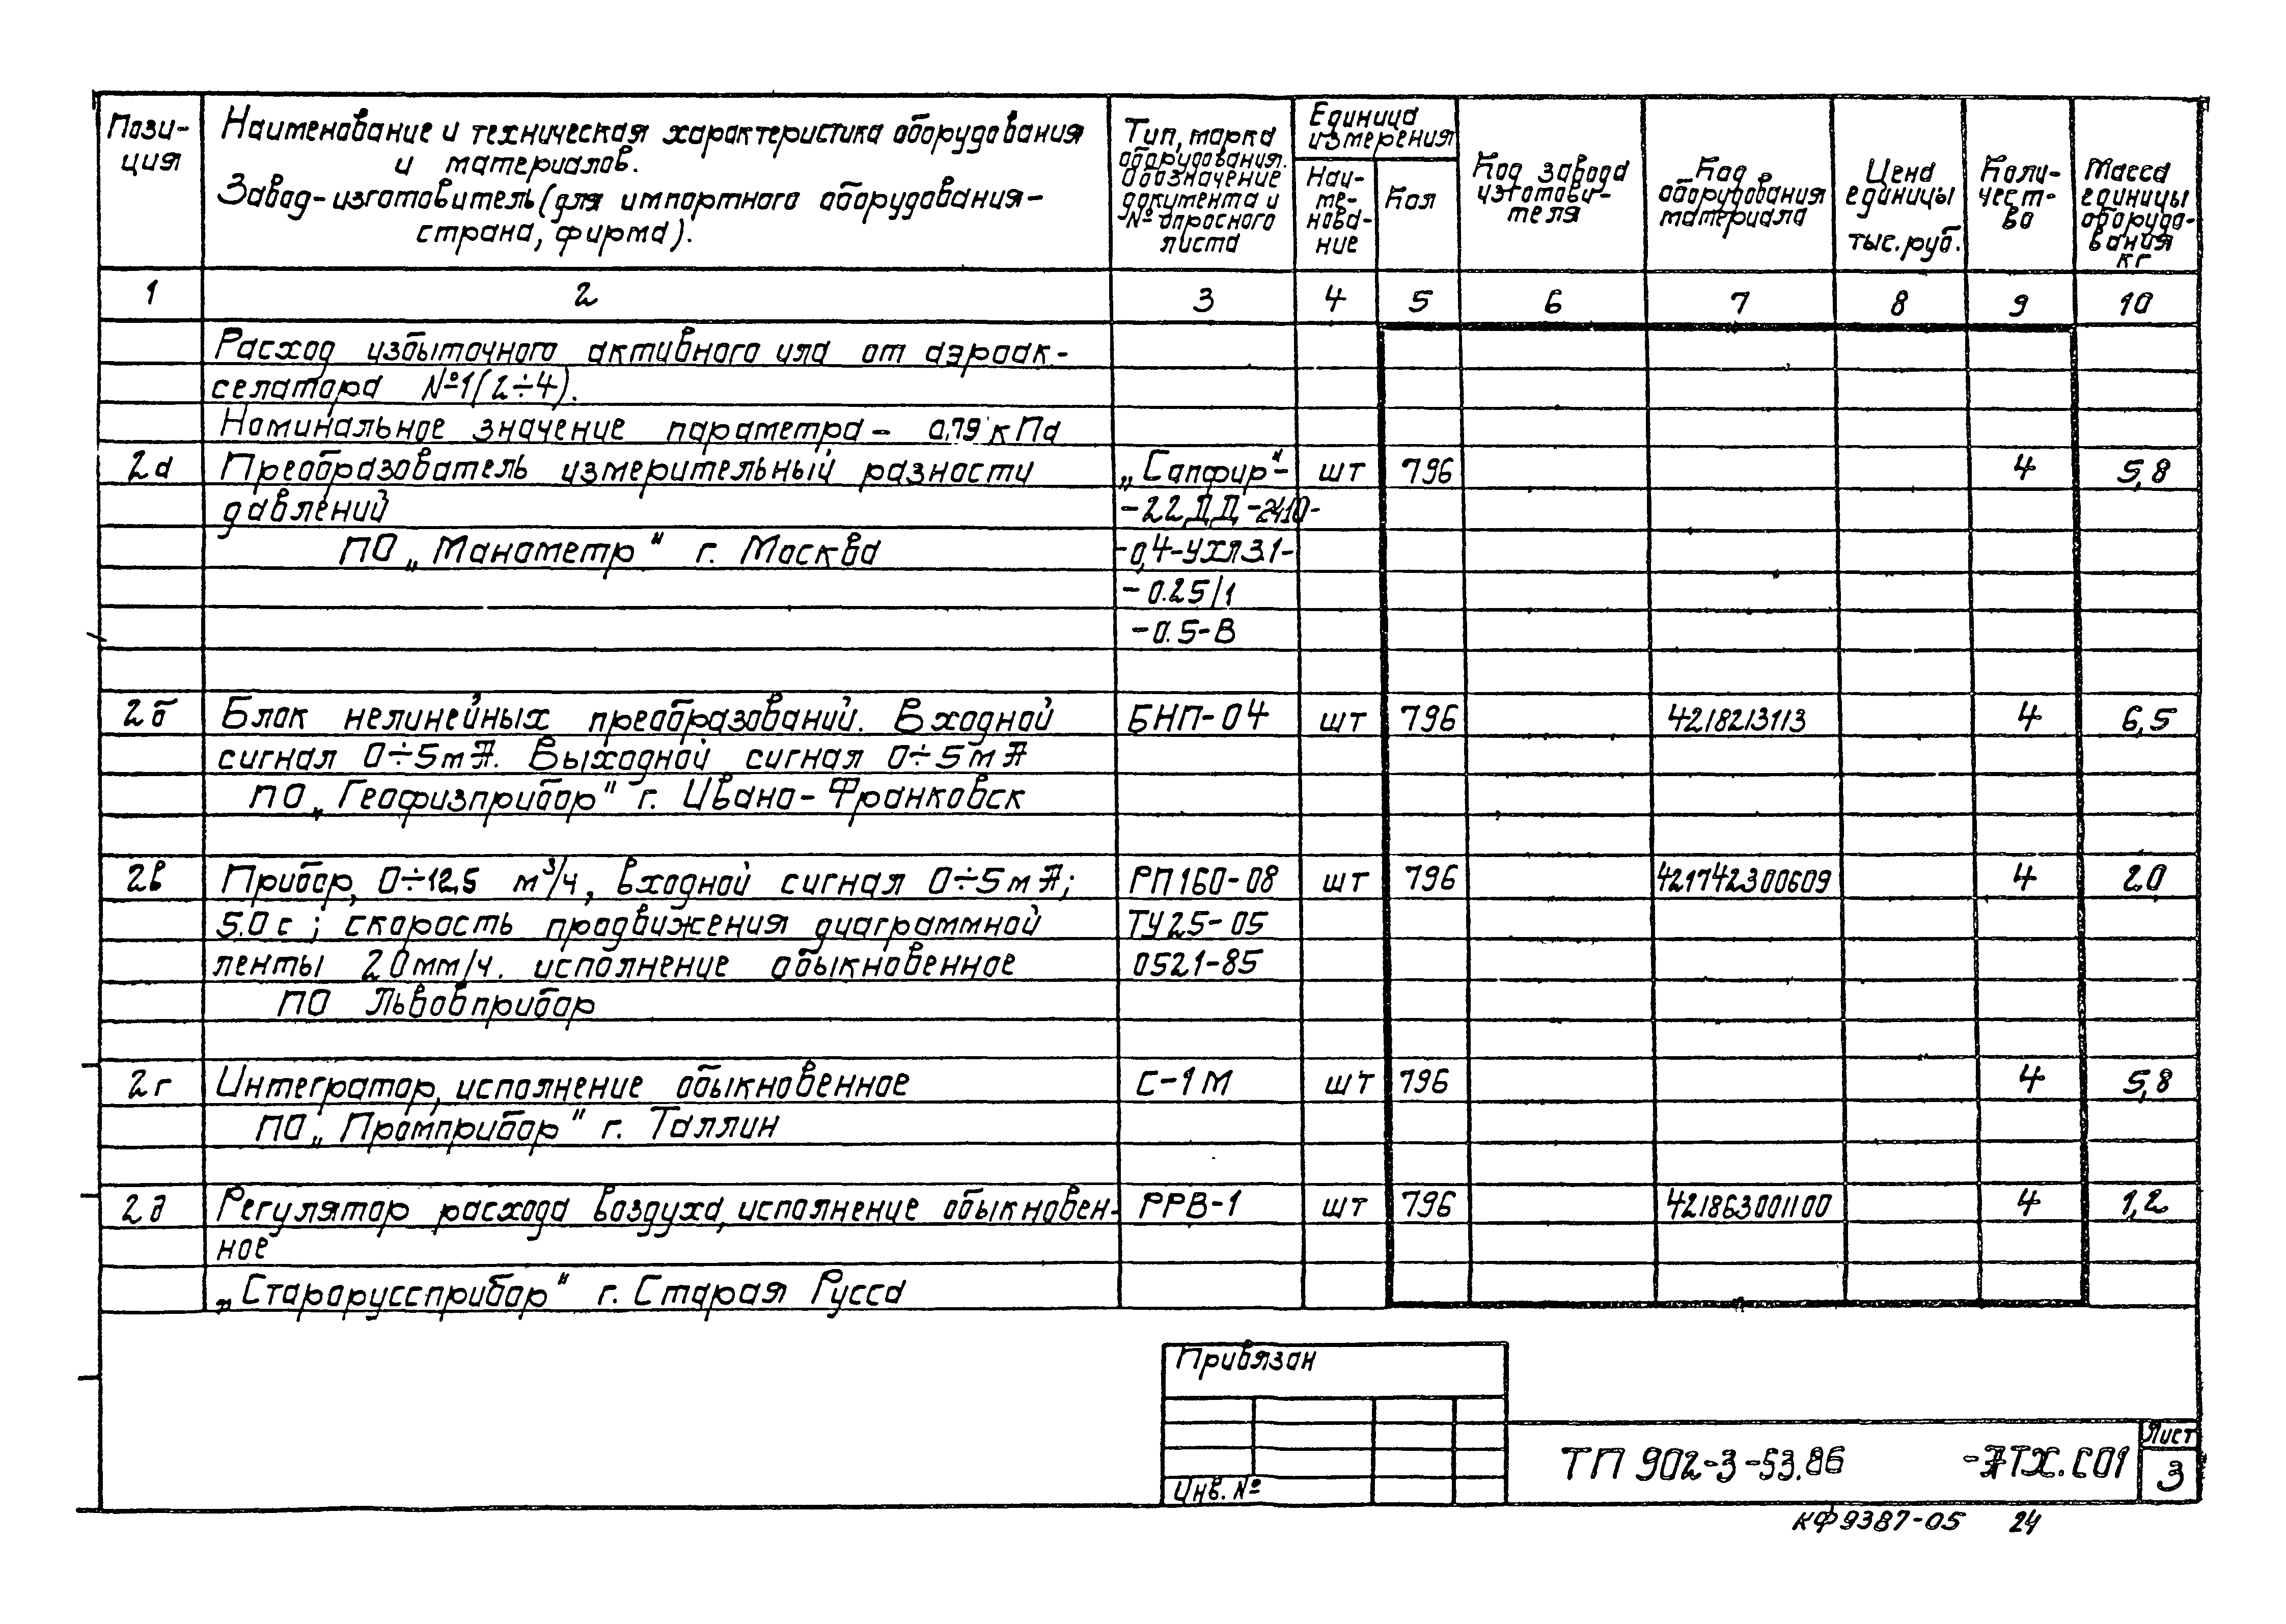 Пози-
ция
Наименование и техническая характеристика оборудования
и материалов.
Завод-изготовитель (для импортного оборудования-
страна, фирма).
Тип, марка
оборудования.
Обозначение
документа и
№ опросного
листа
Единица
измерения
Наи-
ме-
нова-
ние
Код
Код завода
изготови-
теля
Код
оборудования
материала
Цена
единицы
тыс. руб.
Коли-
чест-
во
Масса
единицы
оборудо-
вания
кг
1 2 3 4 5 6 7 8 9 10
Расход избыточного активного ила от аэроак-
селатора №1(2÷4).
Номинальное значение параметра - 0,79 кПа
2а Преобразователь измерительный разности „Сапфир"- шт 796 4 5,8
давлений -22ДД-2410-
ПО „Манометр" г. Москва -0,4-УХЛ3.1-
-0.25/1
-0.5-В
2б Блок нелинейных преобразований. Входной БНП-04 шт 796 4218213113 4 6,5
сигнал 0÷5мА. Выходной сигнал 0÷5мА
ПО „Геофизприбор" г. Ивано-Франковск
2в Прибор, 0÷12,5 м³/ч, входной сигнал 0÷5мА; РП160-08 шт 796 421742300609 4 20
5.0 с; скорость продвижения диаграммной ТУ25-05
ленты 20мм/ч. исполнение обыкновенное 0521-85
ПО Львовприбор
2г Интегратор, исполнение обыкновенное С-1М шт 796 4 5,8
ПО „Промприбор" г. Таллин
2д Регулятор расхода воздуха, исполнение обыкновен- РРВ-1 шт 796 421863001100 4 1,2
ное
„Старорусприбор" г. Старая Русса
Привязан
Инв. №
ТП 902-3-53.86 -АТХ.С01
Лист
3
КФ 9387-05 24